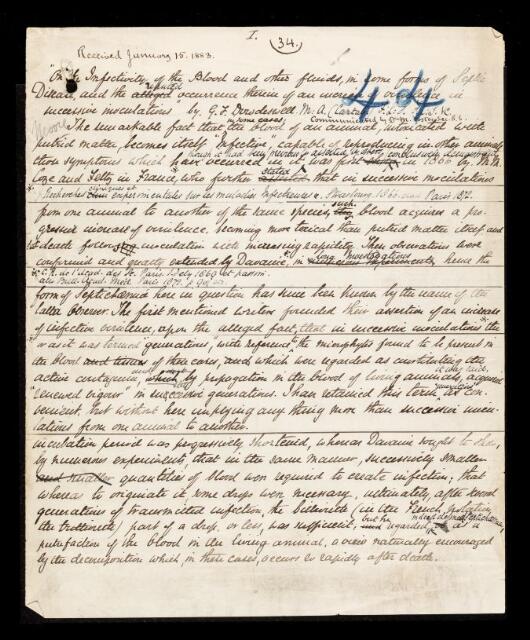 I.
(34.)
Received January 15. 1883.
434
"On the Infectivity of the Blood and other fluids, in some forms of Septic
Disease, and the alleged reputed occurrence therein of an increase in virulence in
successive inoculations" by G. F. Dowdeswell, M. A. (Cantab)
Communicated by
The remarkable fact that, the blood of an animal, infected with
putrid matter, becomes itself infective, capable of reproducing in other animals
the symptoms which have occurred in it, was first in 1866 by
Coze and Feltz in France, who further stated that in successive inoculations
Recherches cliniques et experimentales sur les maladies Infectieuses. Strasbourg 1866. and Paris 1872.
from one animal to another of the same species, such blood acquires a pro-
gressive increase of virulence, becoming more toxical than putrid matter itself and
death follows inoculation with increasing rapidity. These observations were
confirmed and greatly extended by Davaine, in long investigations hence the
form of Septichæmia here in question has since been known by the name of the
latter observer. The first mentioned writers founded their assertion of an increase
of infective virulence, upon the alleged fact, that in successive inoculations the
or as it was termed generations, with reference to the microphytes found to be present in
the blood and tissues of these cases, and which were regarded as constituting the
active contagium, by propagation in the blood of living animals, acquired
"renewed vigour" in successive generations. I have retained this term as con-
venient, but without here implying any thing more than successive inocu-
lations from one animal to another.
incubation period was progressively shortened, whereas Davaine sought to show,
by numerous experiments, that in the same manner, successively smaller
and smaller quantities of blood were required to create infection; that
whereas to originate it some drops were necessary, ultimately, after several
generations of transmitted infection, the billionth (in the French notation,
the trillionth) part of a drop, or less, was sufficient, but he regarded it as a
putrefaction of the blood in the living animal, a view naturally encouraged
by the decomposition which, in these cases, occurs so rapidly after death.